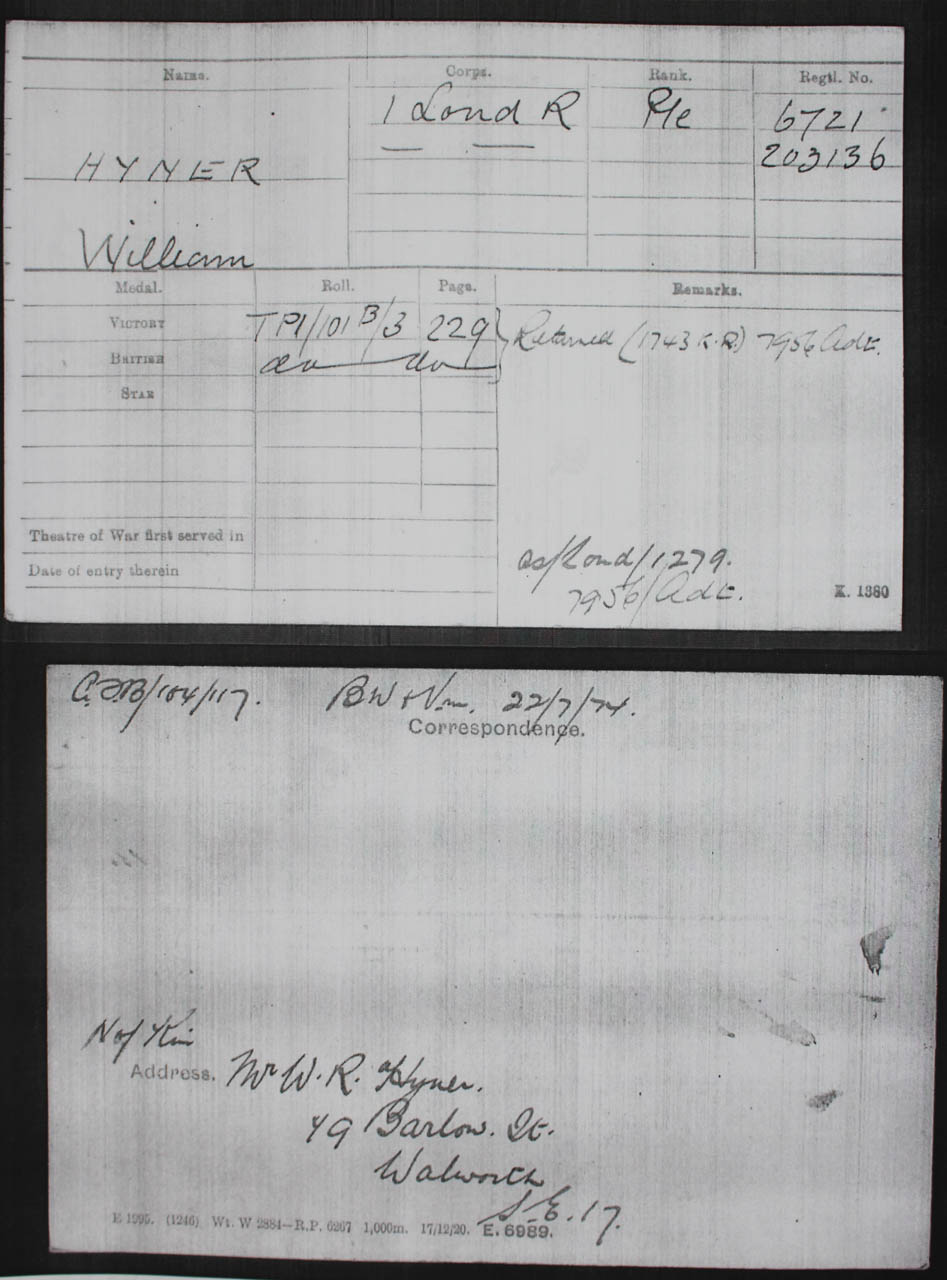 Name. Corps. Rank. Regtl. No.
1 Lond R Pte 6721
203136
HYNER
William
Medal. Roll. Page. Remarks.
VICTORY TP1/101 B/3 229 Returned (1743 K.R) 7956 Adt.
BRITISH do do
STAR
Theatre of War first served in
Date of entry therein
os/Lond/1279.
7956/Adt.
K. 1380
/104/117. BW & Vm. 22/7/74.
Correspondence.
N of Kin
Address. Mr W. R. Hyner.
49 Barlow. St.
Walworth
S.E. 17.
E 1995. (1246) Wt. W 2884—R.P. 6267 1,000m. 17/12/20. E.6989.